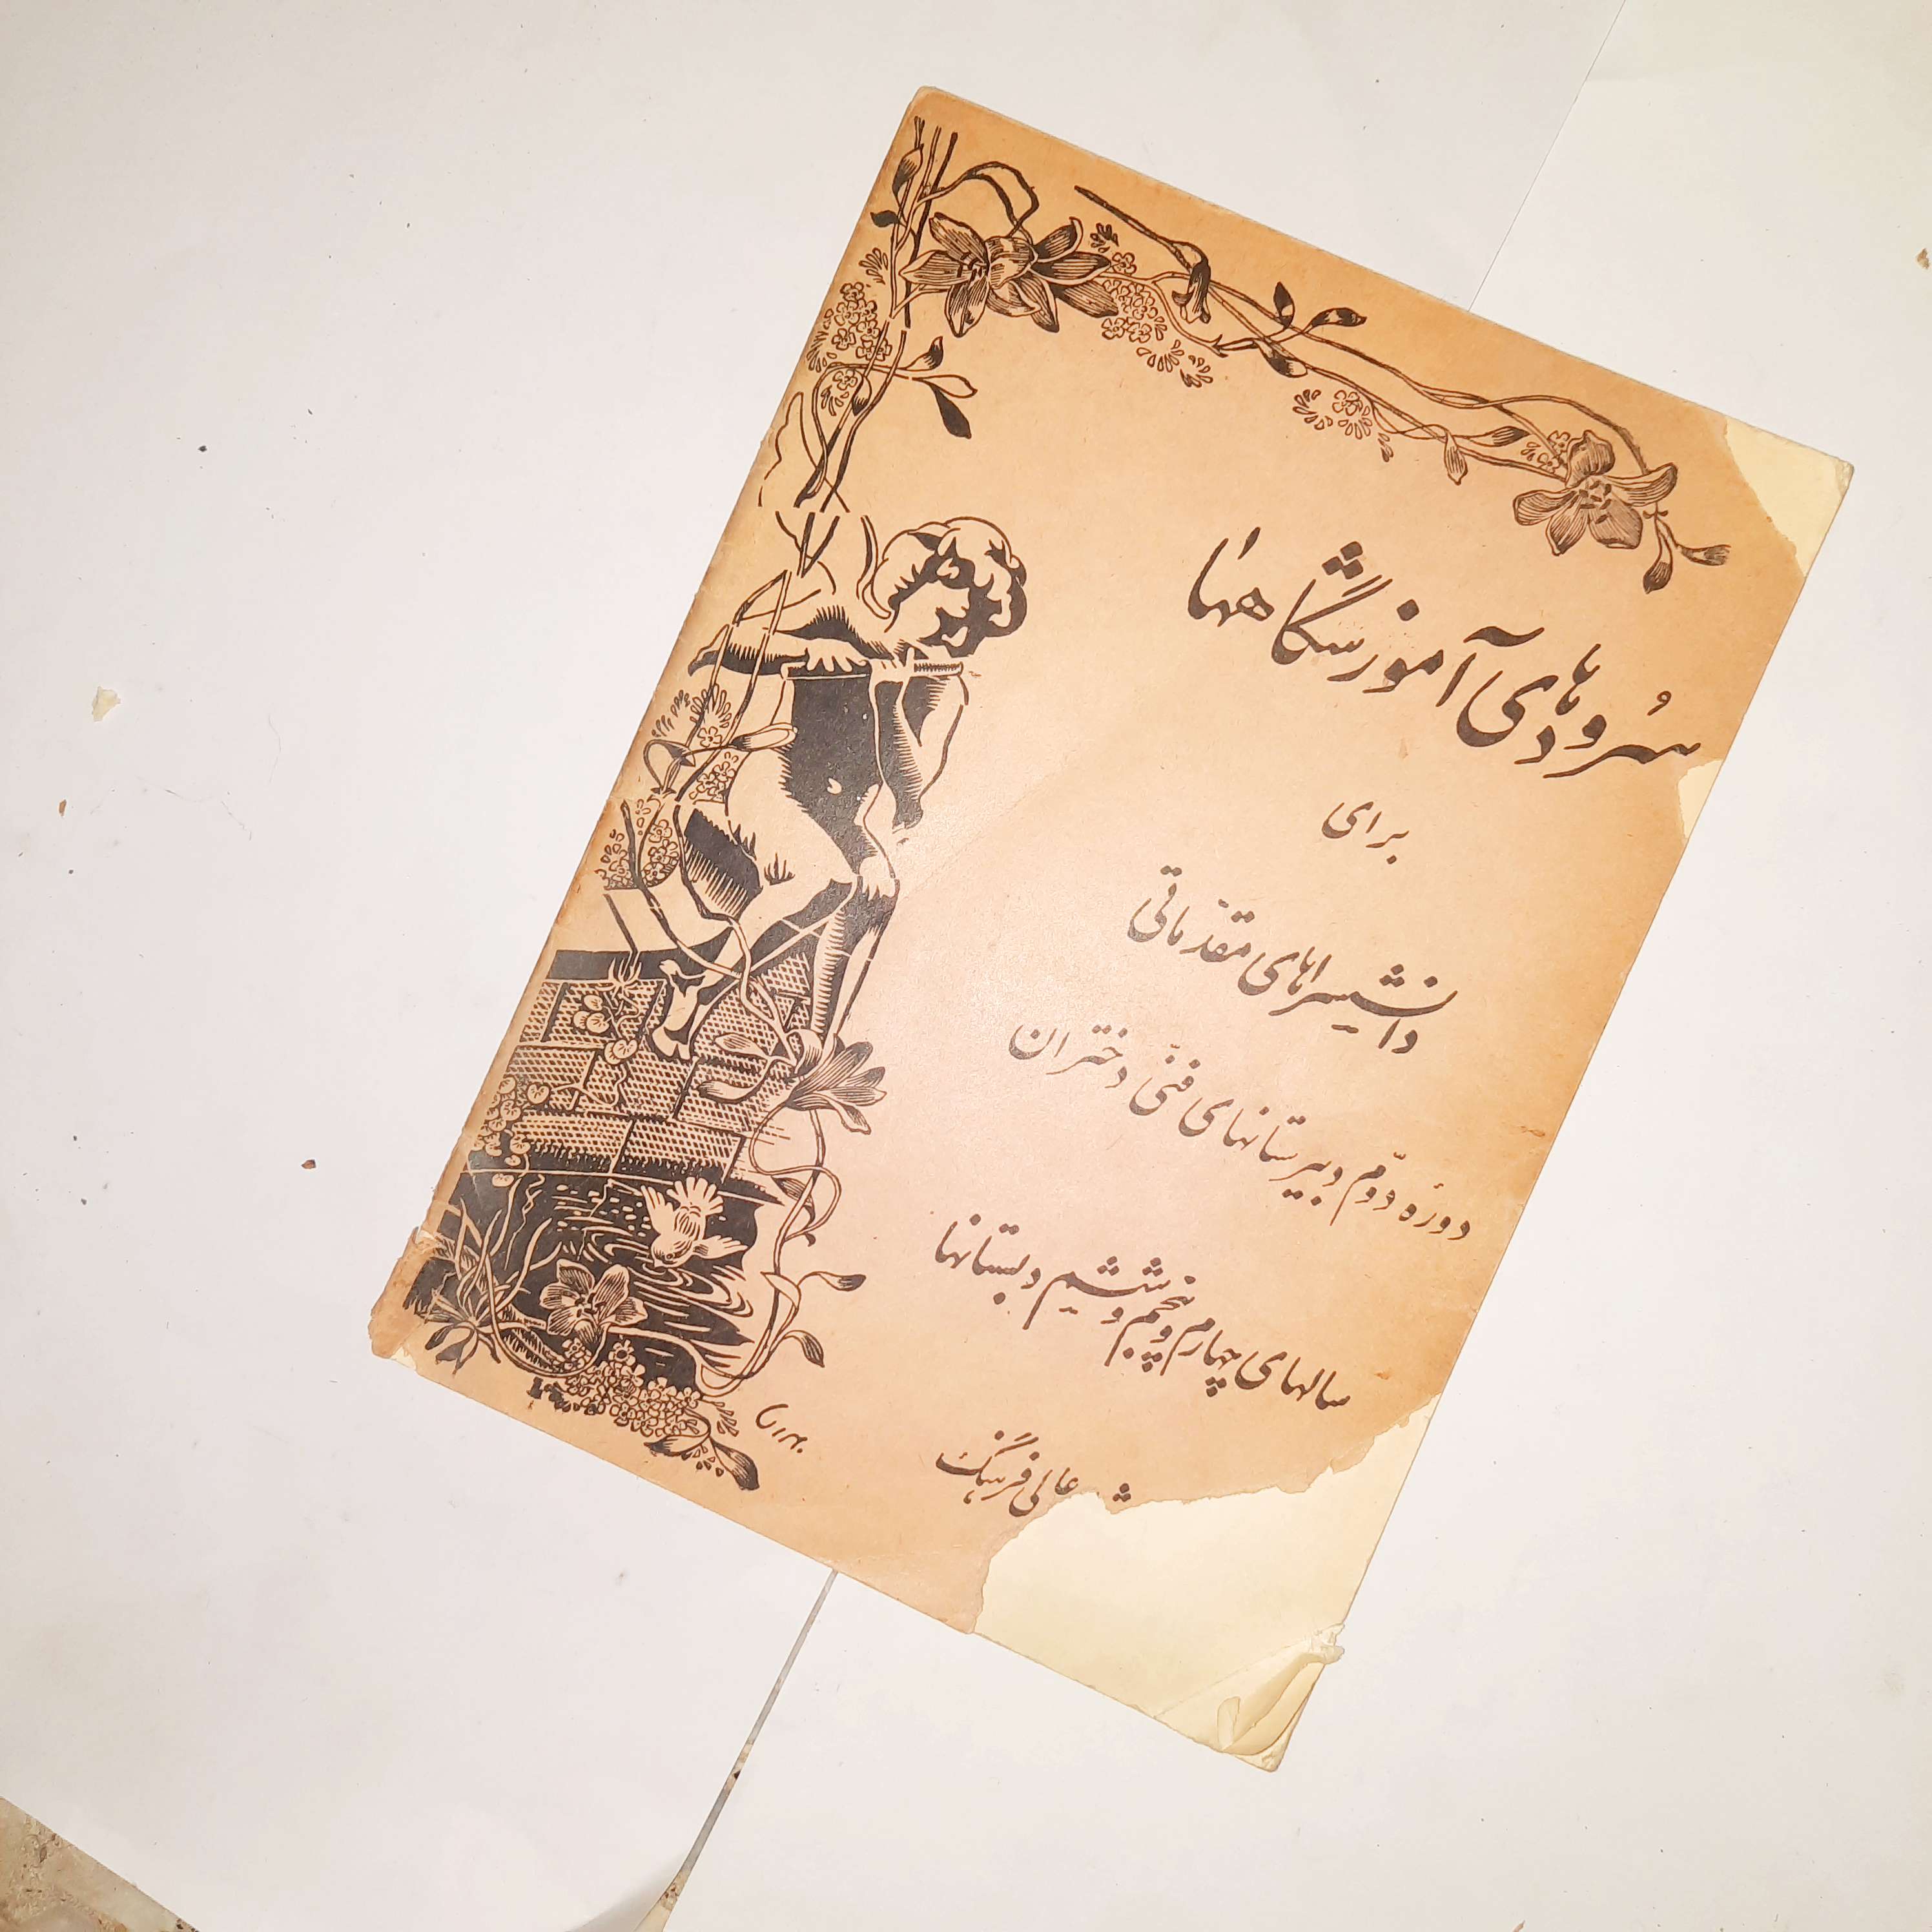 سُرودهای آموزشگاهها
برای
دانشسراهای مقدّماتی
دورهٔ دوّم دبیرستانهای فنّی دختران
سالهای چهارم و پنجم و ششم دبستانها
عالی فرهنگ